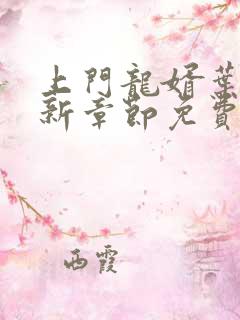 上門龍婿葉
新章節免費
西霞